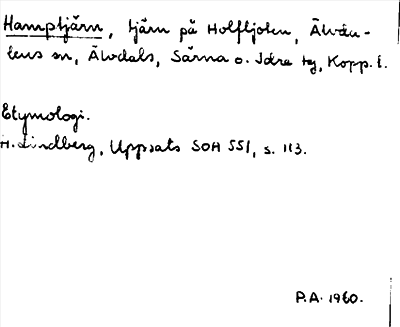 Hamptjärn, tjärn på Holfljoten, Älvda-
lens sn, Älvdals, Särna o. Idre tg, Kopp. l.
Etymologi.
H. Lindberg, Uppsats SOH 551, s. 113.
P.A. 1960.